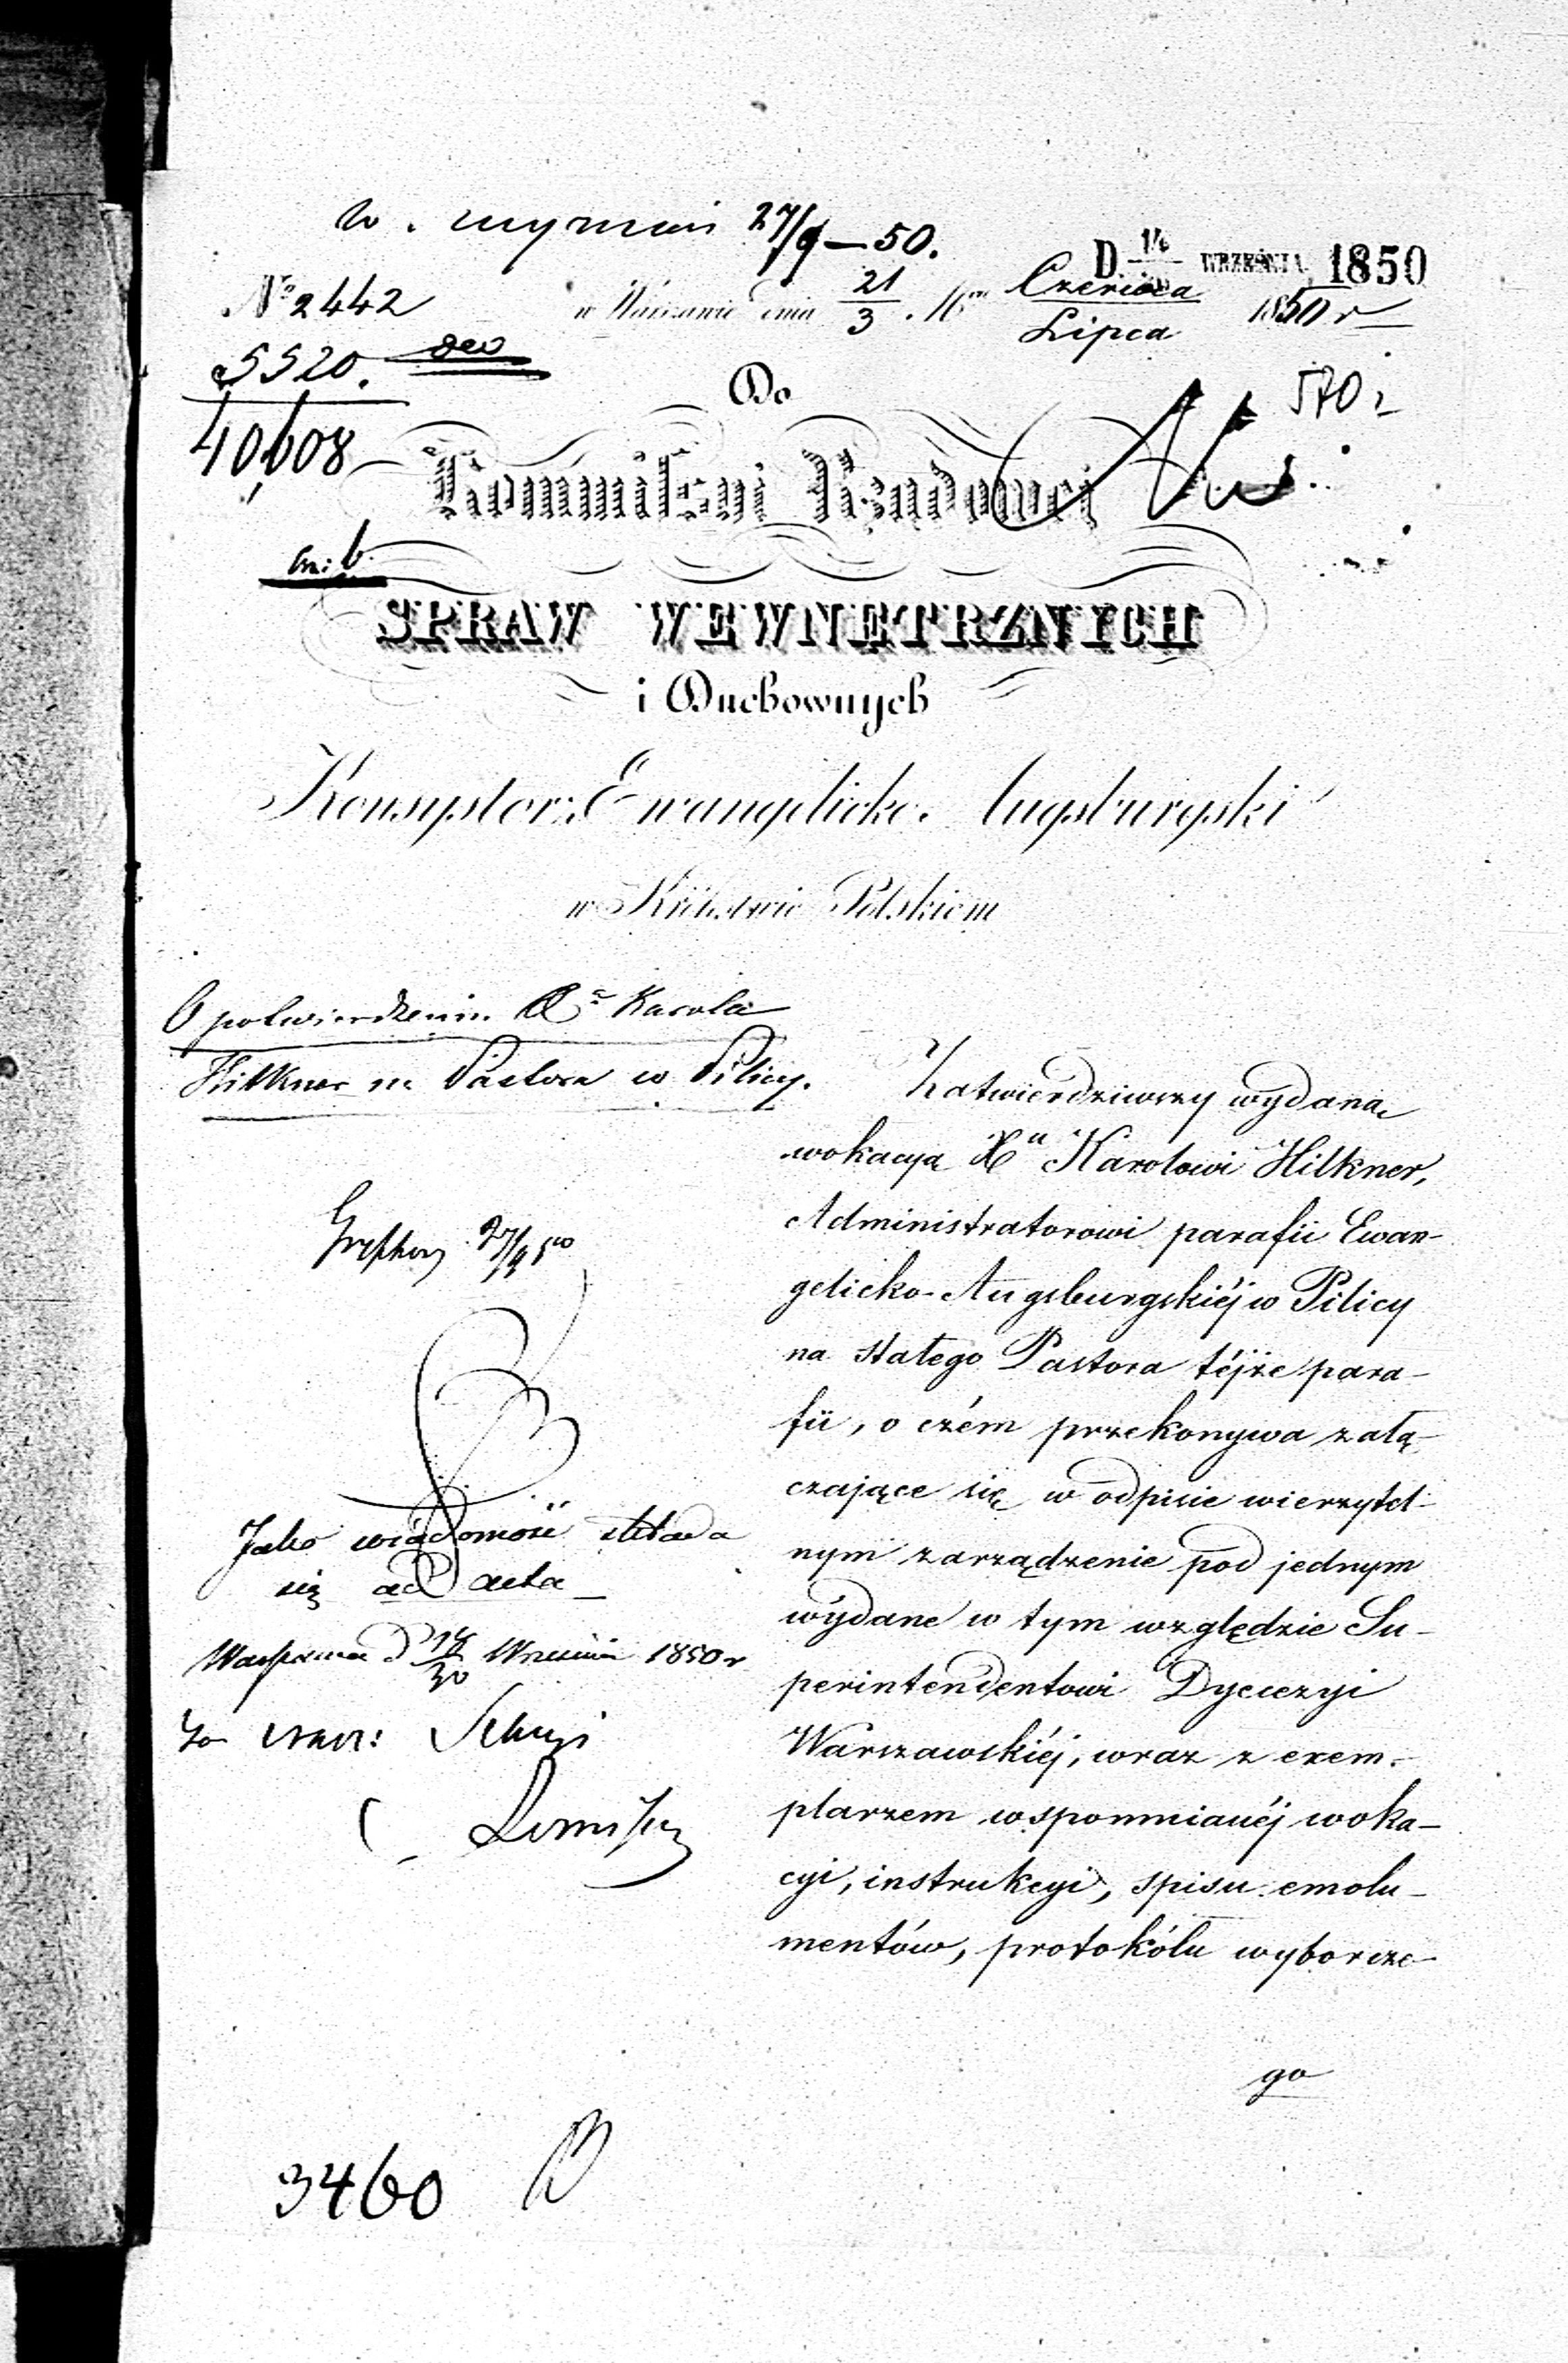 27/9 — 50.
D 14 WRZEŚNIA 1850
№ 2442
w Warszawie dnia 21/3 Czerwca/Lipca 1850 r
5520.
Do
40,608
Kommissyi Rządowej
SPRAW WEWNĘTRZNYCH
i Duchownych
Konsystorz Ewangelicko-Augsburgski
w Królestwie Polskiem
O potwierdzeniu Xa Karola
Hilkner na Pastora w Pilicy.
Zatwierdziwszy wydaną
wokacyą Xu Karolowi Hilkner,
Administratorowi parafii Ewan-
gelicko-Augsburgskiéj w Pilicy
na stałego Pastora téjże para-
fii, o czém przekonywa załą-
czające się w odpisie wierzytel-
nym zarządzenie pod jednym
wydane w tym względzie Su-
perintendentowi Dyecezyi
Warszawskiéj, wraz z exem-
plarzem wspomnianéj woka-
cyi, instrukcyi, spisu emolu-
mentów, protokółu wyborcze-
go
Jako wiadomość składa
się ad acta
Warszawa d 18/30 Września 1850 r
3460